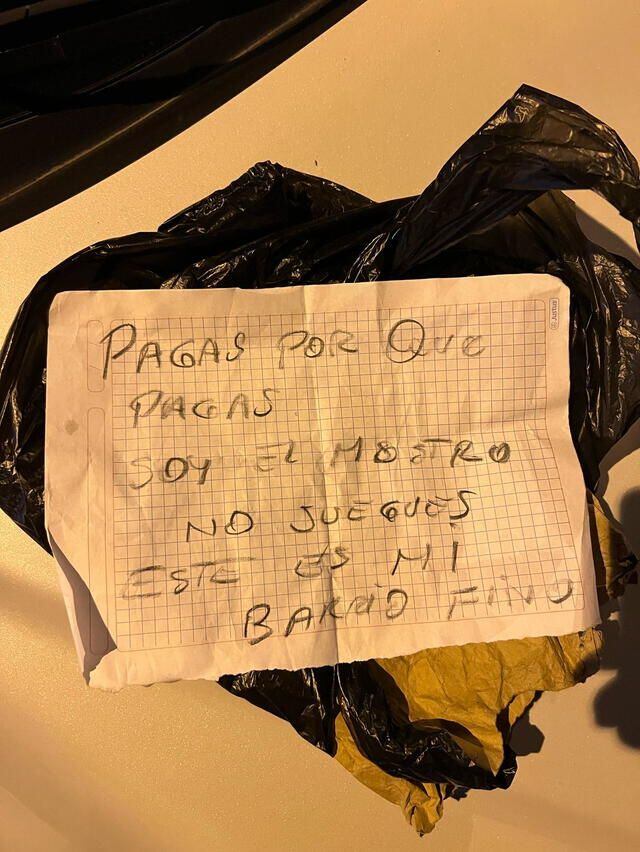 PAGAS POR QUE
PAGAS
SOY EL MOSTRO
NO JUEGUES
ESTE ES MI
BARRIO FINO
Justus